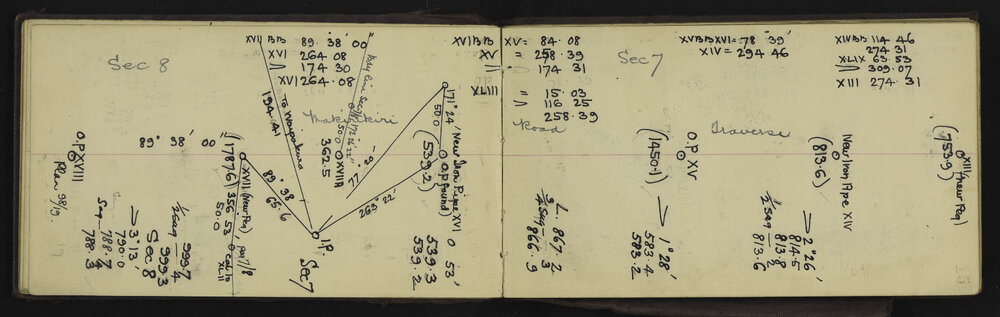 XVII BB 89. 38' 00
XVI 264 08
" 174 30
XVI 264.08
Sec 8
XVI BB XV = 84.08
XV " 258.39
" 174 31
XLIII " 15.03
" 116 25
258.39
Sec 7
XVBB XVI = 78° 39'
XIV = 294 46
XIV BB 114 46
274 31
XLIX 63.53
" 309.07
XIII 274.31
Makirikiri
Road
Traverse
O.P. XVIII
Plan 98/9.
89° 38' 00
1/2 sag 999.7
4
999.3
Sec 8
→ 3° 13'
790.0
Sag 788.7
4
788.3
(1787.6)
XVII (New Peg)
356 53
50.0
194.41
To Wanganui
89° 38'
65.6
I.P.
Sec 7
50.0 O XVIIA
362.5
77° 20'
263° 22'
171° 24'
50.0
(539.2)
New Iron Pipe XVI
O.P. found
0 53'
539.3
539.2
L. 867.2
3/4 sag 3
866.9
(1450.1)
O.P. XV
→ 1° 28'
583.4
583.2
(813.6)
New Iron Pipe XIV
→ 2° 26'
814.5
813.8
1/2 sag 2
813.6
(753.9)
XIII (new Peg)